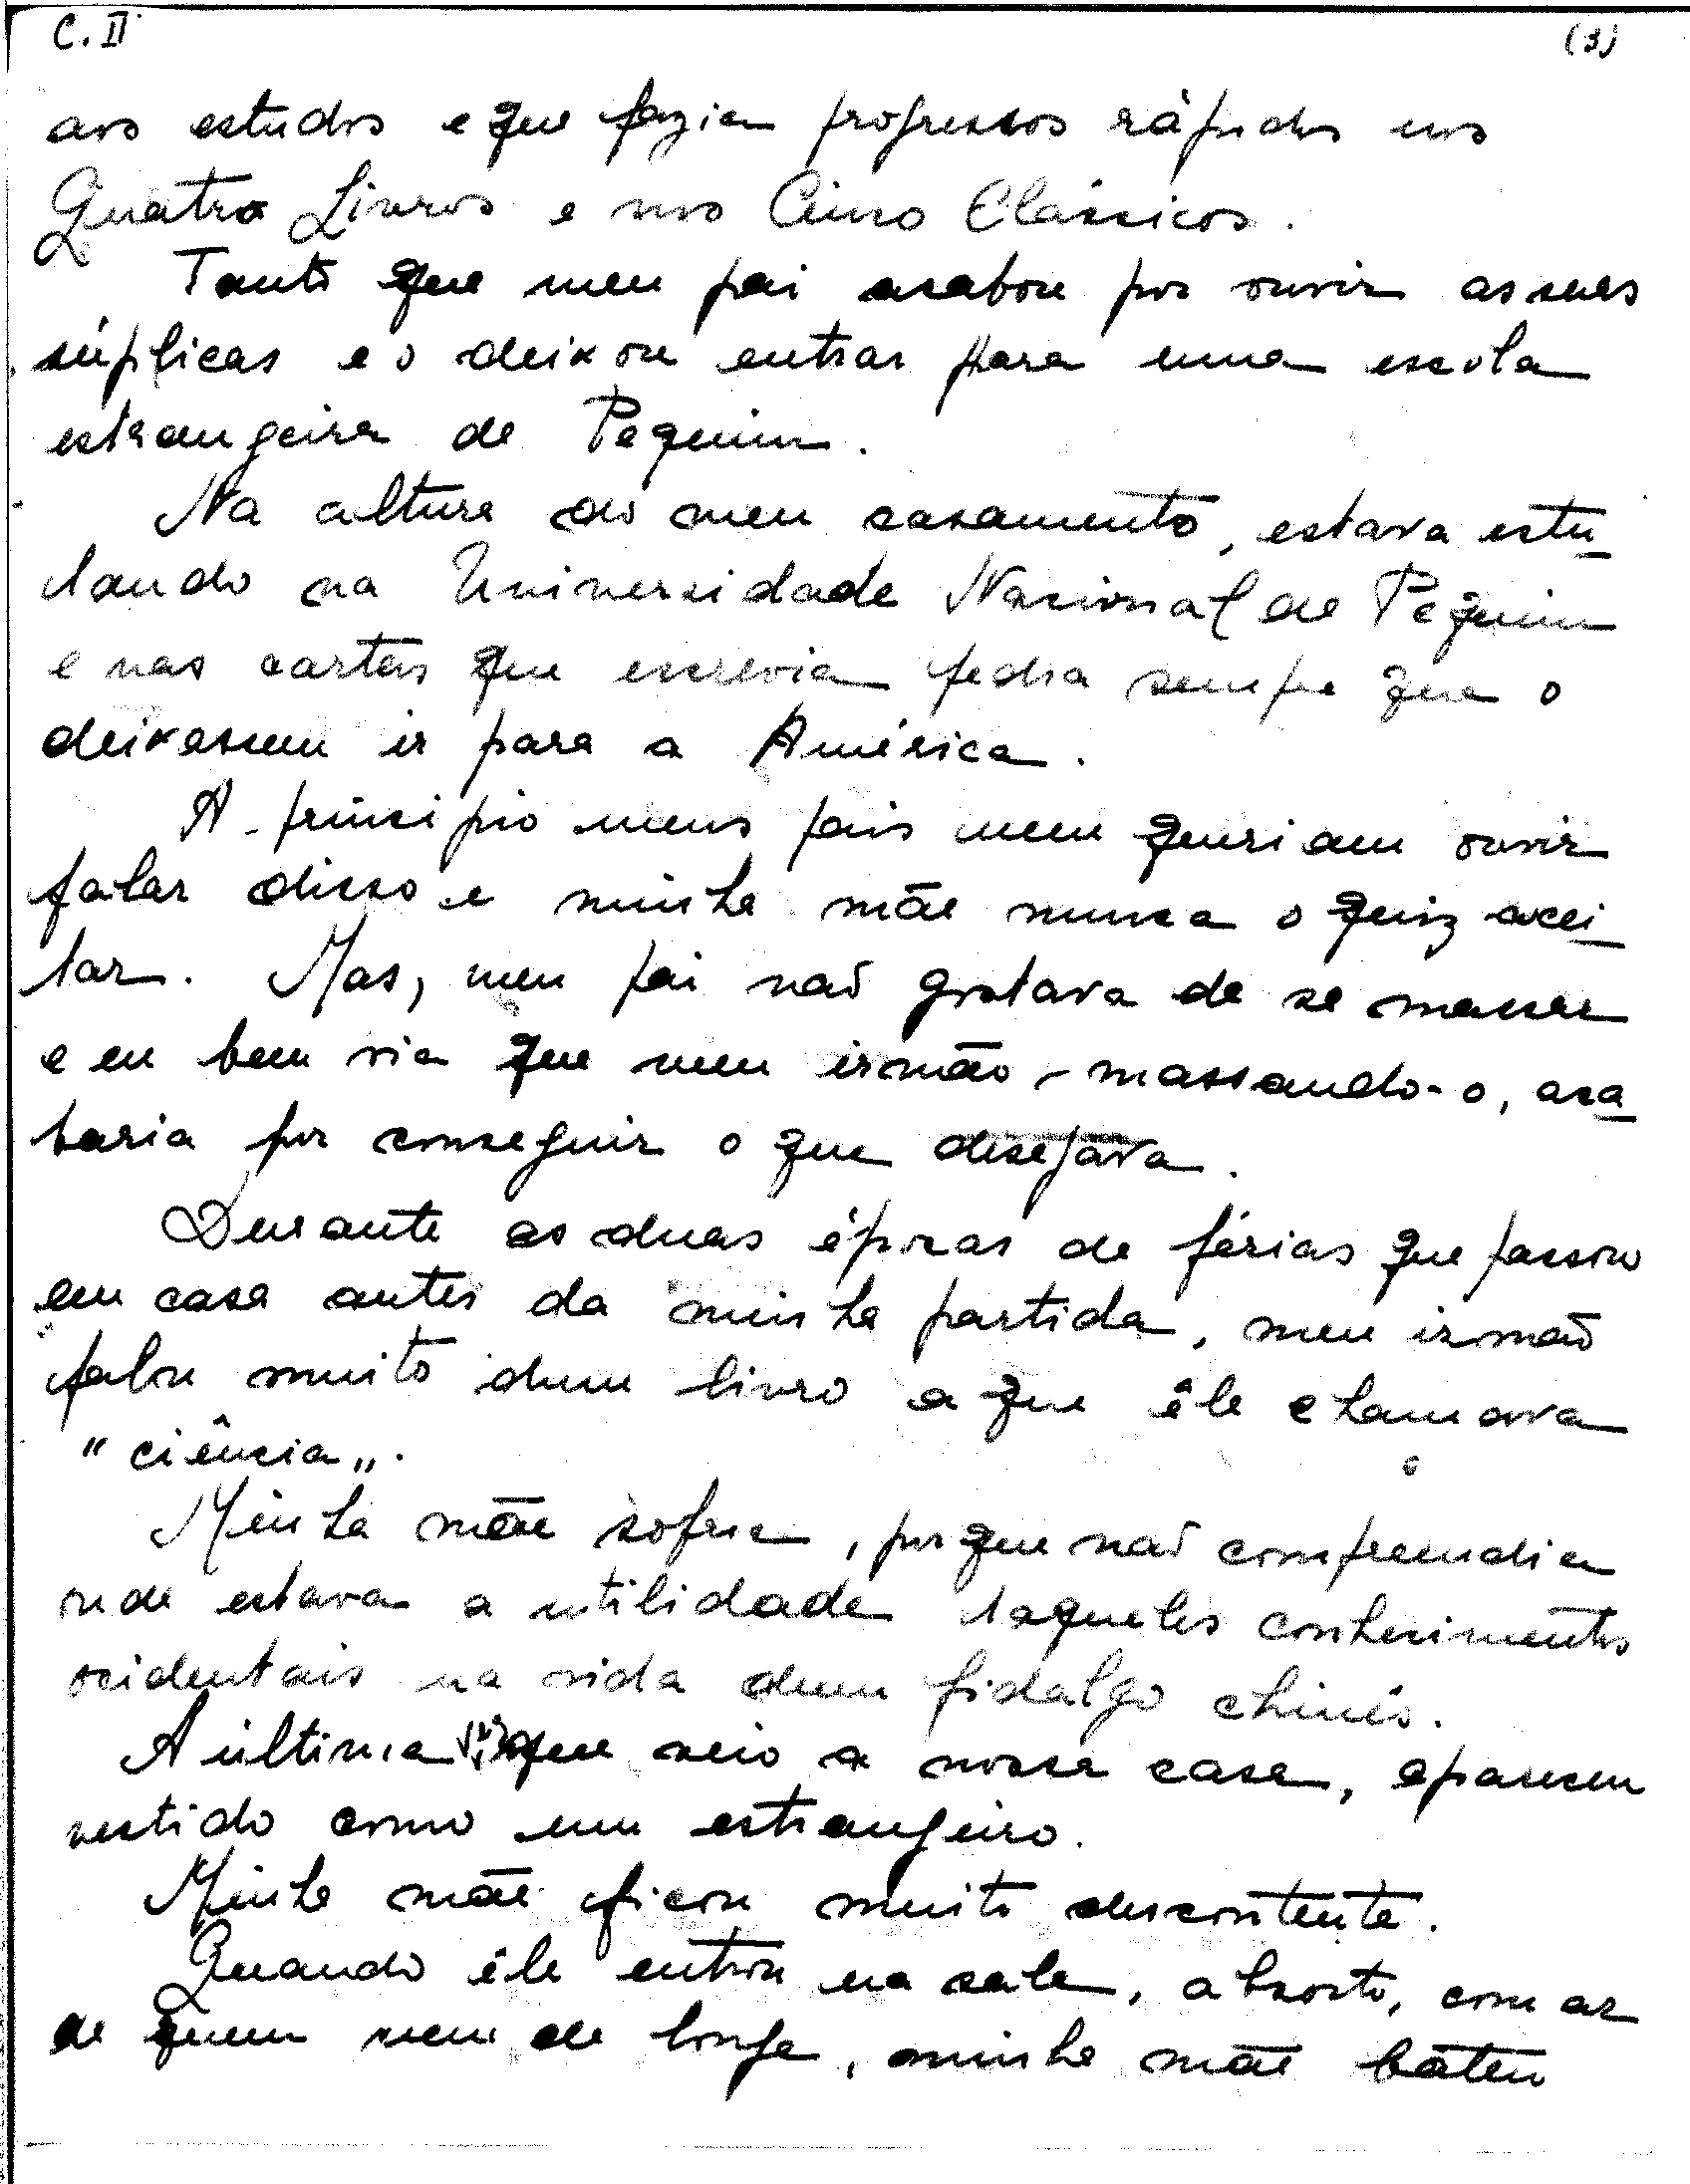 C. II (3)
aos estudos e que fazia progressos rápidos nos
Quatro Livros e nos Cinco Clássicos.
Tanto que meu pai acabou por ouvir as suas
súplicas e o deixou entrar para uma escola
estrangeira de Pequim.
Na altura do meu casamento, estava estu-
dando na Universidade Nacional de Pequim
e nas cartas que escrevia pedia sempre que o
deixassem ir para a América.
A princípio meus pais nem queriam ouvir
falar disso e minha mãe nunca o quiz acei-
tar. Mas, meu pai não gostava de se massar
e eu bem via que meu irmão, massando-o, aca-
baria por conseguir o que desejava.
Durante as duas épocas de férias que passou
em casa antes da minha partida, meu irmão
falou muito dum livro a que êle chamava
"ciência".
Minha mãe sofria, porque não compreendia
onde estava a utilidade daqueles conhecimentos
ocidentais na vida dum fidalgo chinês.
A última vez que veio a nossa casa, apareceu
vestido como um estrangeiro.
Minha mãe ficou muito descontente.
Quando êle entrou na sala, absorto, com ar
de quem vem de longe, minha mãe bateu